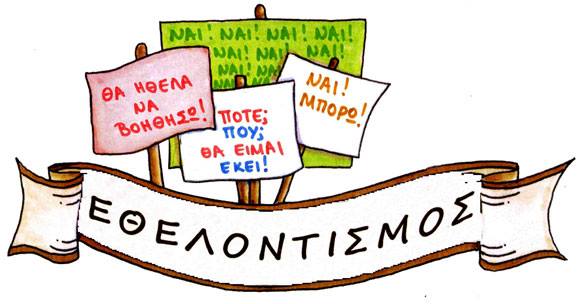 ΝΑΙ! ΝΑΙ! ΝΑΙ! ΝΑΙ! ΝΑΙ!
ΝΑΙ! ΝΑΙ! ΝΑΙ! ΝΑΙ!
ΝΑΙ! ΝΑΙ! ΝΑΙ!
ΝΑΙ! ΝΑΙ!
ΘΑ ΗΘΕΛΑ
ΝΑ
ΒΟΗΘΗΣΩ!
ΠΟΤΕ;
ΠΟΥ;
ΘΑ ΕΙΜΑΙ
ΕΚΕΙ!
ΝΑΙ!
ΜΠΟΡΩ!
ΕΘΕΛΟΝΤΙΣΜΟΣ